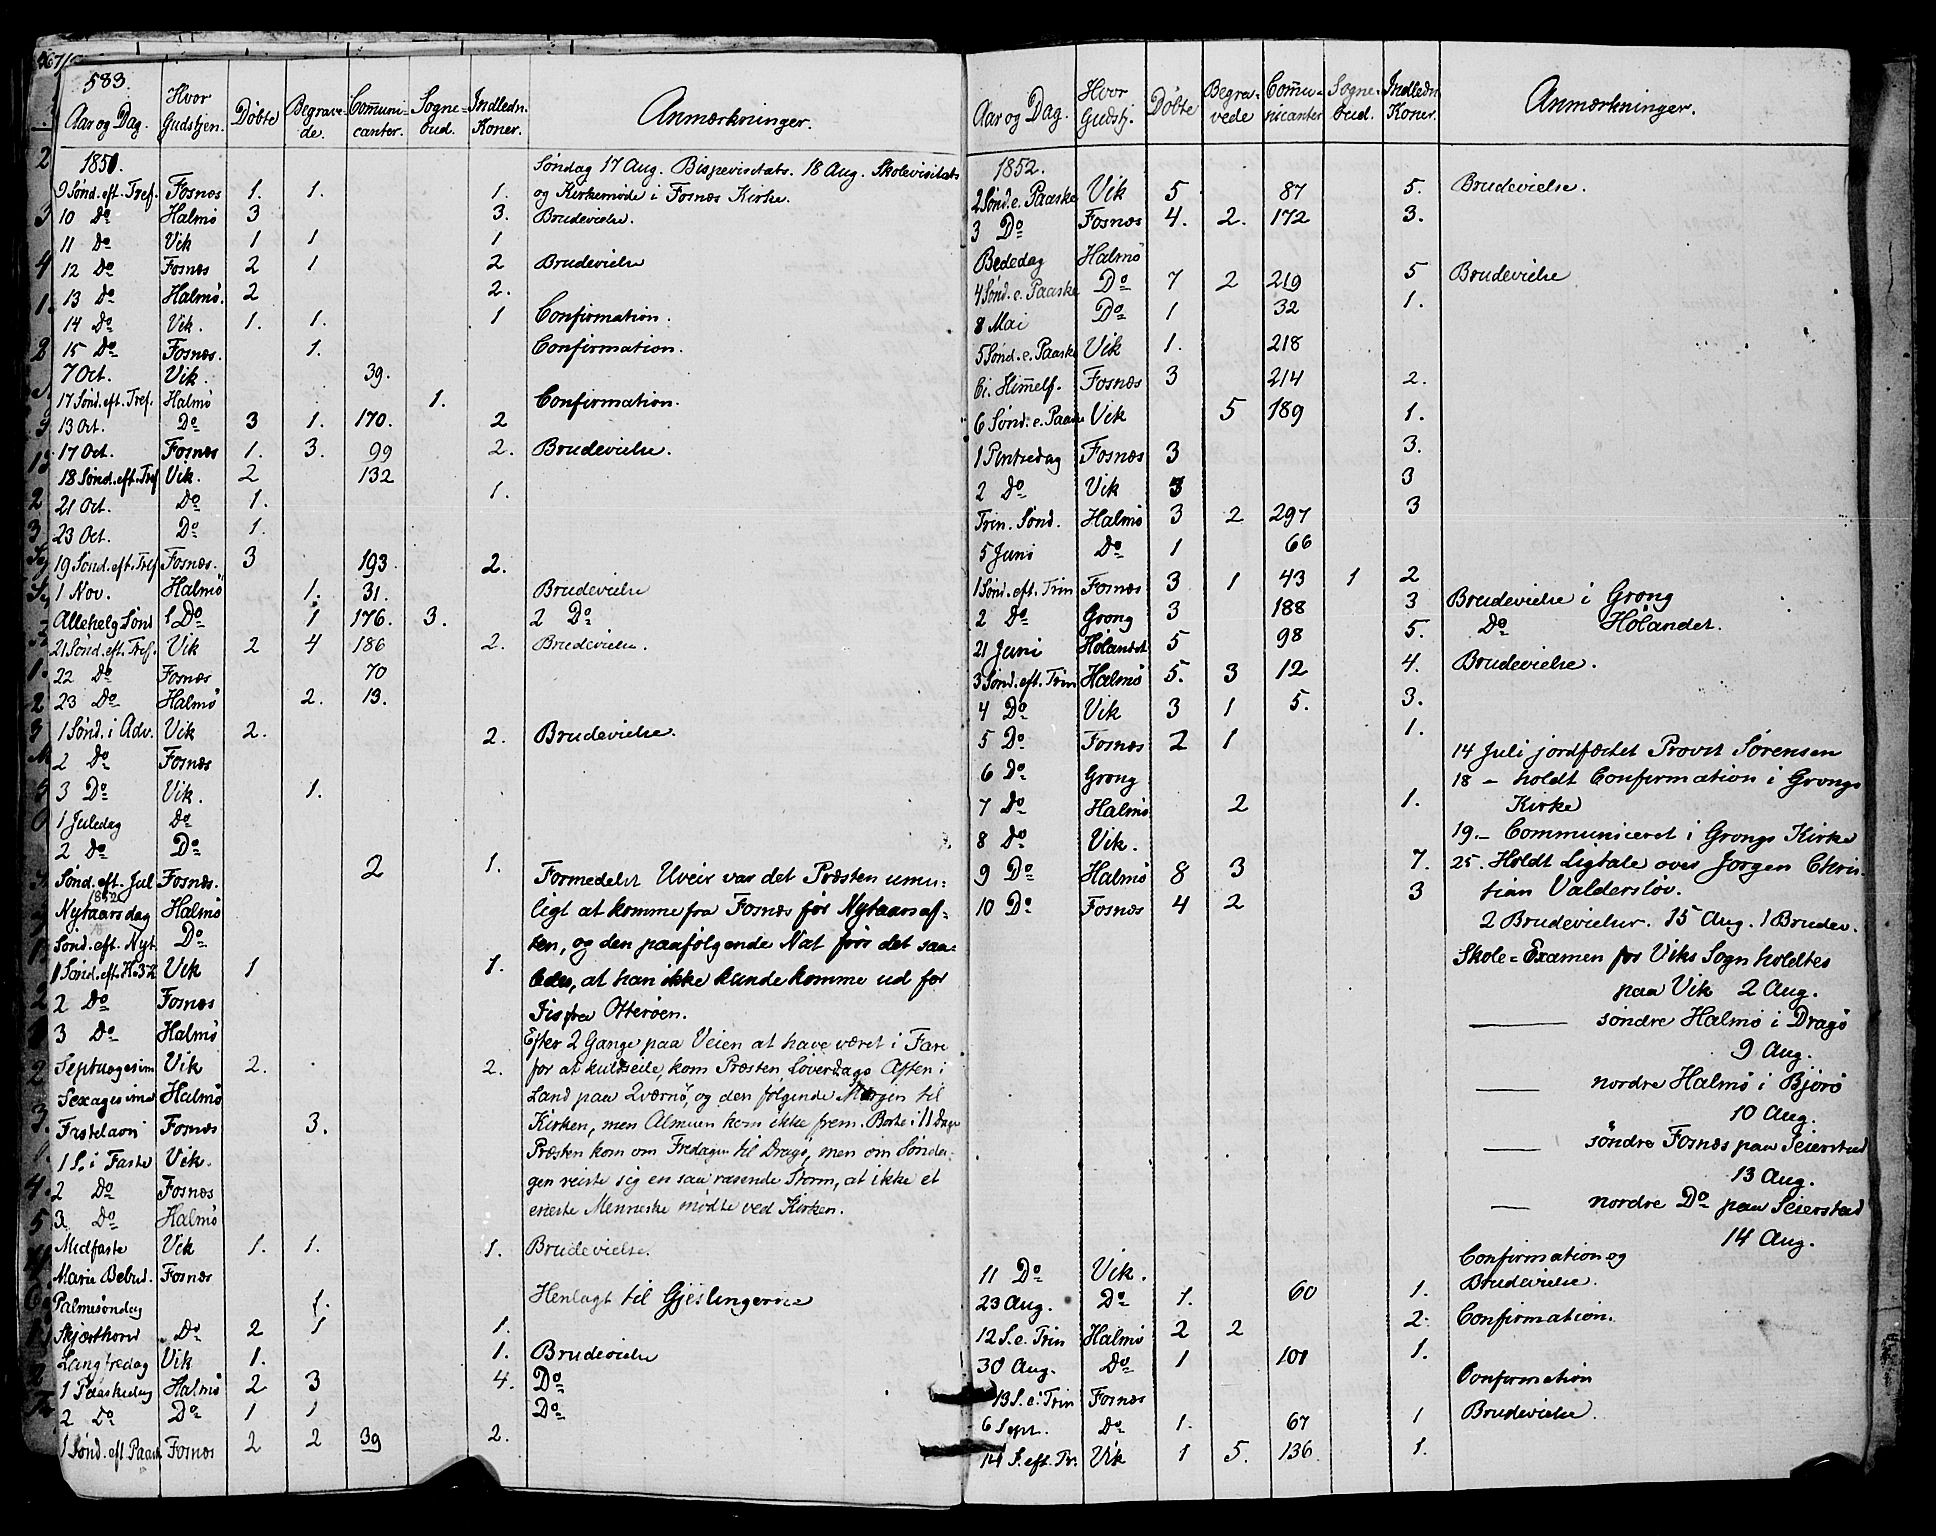 583.
Aar og Dag. Hvor Gudstjen. Døbte Begravede. Communicanter. Sognebud. Indledn. Koner. Anmærkninger.
1851. Søndag 17 Aug. Bispevisitats. 18 Aug. Skolevisitats
9 Sønd. eft. Tref. Fosnæs 1. 1. 1. og Kirkemøde i Fosnæs Kirke.
10 Do Halmø 3 3. Brudevielse.
11 Do Vik 1 1 1
12 Do Fosnæs 2 1 2 Brudevielse
13 Do Halmø. 2 2.
14 Do Vik. 1. 1. 1 Confirmation.
15 Do Fosnæs. 1. Confirmation.
7 Oct. Vik. 39.
17 Sønd. eft. Tref. Halmø 1. Confirmation.
13 Oct. Do 3 1. 170. 2
17 Oct. Fosnæs 1. 3. 99 2. Brudevielse.
18 Sønd. eft. Tref Vik. 2 132
21 Oct. Do 1. 1.
23 Oct. Do 1.
19 Sønd. eft. Tref Fosnæs. 3 193 2.
1 Nov. Halmø 1. 31. Brudevielse
Allehelg. Sønd Do 1 176. 3. 2 Do
21 Sønd. eft. Tref. Vik 2 4 186 2. Brudevielse.
22 Do Fosnæs 70
23 Do Halmø 2. 13.
1 Sønd. i Adv. Vik 2. 2. Brudevielse.
2 Do Fosnæs
3 Do Vik. 1.
1 Juledag Do
2 Do Do
Sønd. eft. Jul Fosnæs. 2 1. Formedelst Uveir var det Præsten umu-
1852
Nytaarsdag Halmø ligt at komme fra Fosnæs før Nytaarsaf-
Sønd. eft. Nyt. Do ten, og den paafølgende Nat frøs det saa-
1 Sønd. eft. H. 3 K Vik 1 1. ledes, at han ikke kunde komme ud for
2 Do Fosnæs Iis fra Otterøen.
3 Do Halmø Efter 2 Gange paa Veien at have været i Fare
Septuagesim Vik 2. 2. for at kuldseile, kom Præsten Løverdags Aften i
Sexagesima Halmø Land paa Qværnø, og den følgende Morgen til
Fastelavn Fosnæs 3. Kirken, men Almuen kom ikke frem. Borte i 11 Dage
1 S. i Faste Vik. Præsten kom om Fredagen til Dragø, men om Sønda-
2 Do Fosnæs gen reiste sig en saa rasende Storm, at ikke et
3 Do Halmø eneste Menneske mødte ved Kirken.
Midfaste Vik 1. 1. 1. Brudevielse.
Mariæ Bebud. Fosnæs
Palmesøndag 1. Henlagt til Gjeslingerne
Skjærthorsd Do 2 1 1.
Langfredag Vik 1. 1. Brudevielse
1 Paaskedag Halmø 2 3 4. Do
2 Do Do 1 1 Do
1 Sønd. eft Paask Fosnæs 2 2 39 2.
Aar og Dag. Hvor Gudstj. Døbte Begravede Communicanter Sognebud. Indledn. Koner. Anmærkninger.
1852.
2 Sønd. e. Paaske Vik 5 87 5. Brudevielse.
3 Do Fosnæs 4. 2. 172 3.
Bededag Halmø
4 Sønd. e. Paaske Do 7 2 219 5 Brudevielse
8 Mai Do 1 32 1.
5 Sønd. e. Paaske Vik 1. 218
Cr. Himmelf. Fosnæs 3 214 2.
6 Sønd. e. Paaske Vik 5 189 1.
1 Pintsedag Fosnæs 3 3.
2 Do Vik 3 3
Trin. Sønd. Halmø 3 2 297 3
5 Juni Do 1 66
1 Sønd. eft. Trin Fosnæs 3 1 43 1 2
2 Do Grong 3 188 3 Brudevielse i Grong
21 Juni Hølandet 5 98 5. Do Hølandet.
3 Sønd. eft. Trin Halmø 5. 3 12 4. Brudevielse.
4 Do Vik 3 1 5. 3.
5 Do Fosnæs 2 1 1. 14 Juli jordfæstet Provst Sørensen
6 Do Grong 18 – holdt Confirmation i Grongs
7 Do Halmø 2 1. Kirke
8 Do Vik. 19. – Communiceret i Grongs Kirke
9 Do Halmø 8 3 7. 25. Holdt Ligtale over Jørgen Chris-
10 Do Fosnæs 4 2 3 tian Valdersløv.
2 Brudevielser. 15 Aug. 1 Brudev.
Skole-Examen for Viks Sogn holdtes
paa Vik 2 Aug.
— søndre Halmø i Dragø
9 Aug.
— nordre Halmø i Bjørø
10 Aug.
— søndre Fosnæs paa Seierstad
13 Aug.
— nordre Do paa Seierstad
14 Aug.
11 Do Vik. Confirmation og
Brudevielse.
23 Aug. Do 1. 60 1.
12 S. e. Trin Halmø 2 2 2. Confirmation.
30 Aug. Do 1 101 1.
13 S. e. Trin Fosnæs Confirmation
6 Sept. Do 1. 67 1 Brudevielse.
14 S. eft. Tr. Vik 1 5. 136 1.